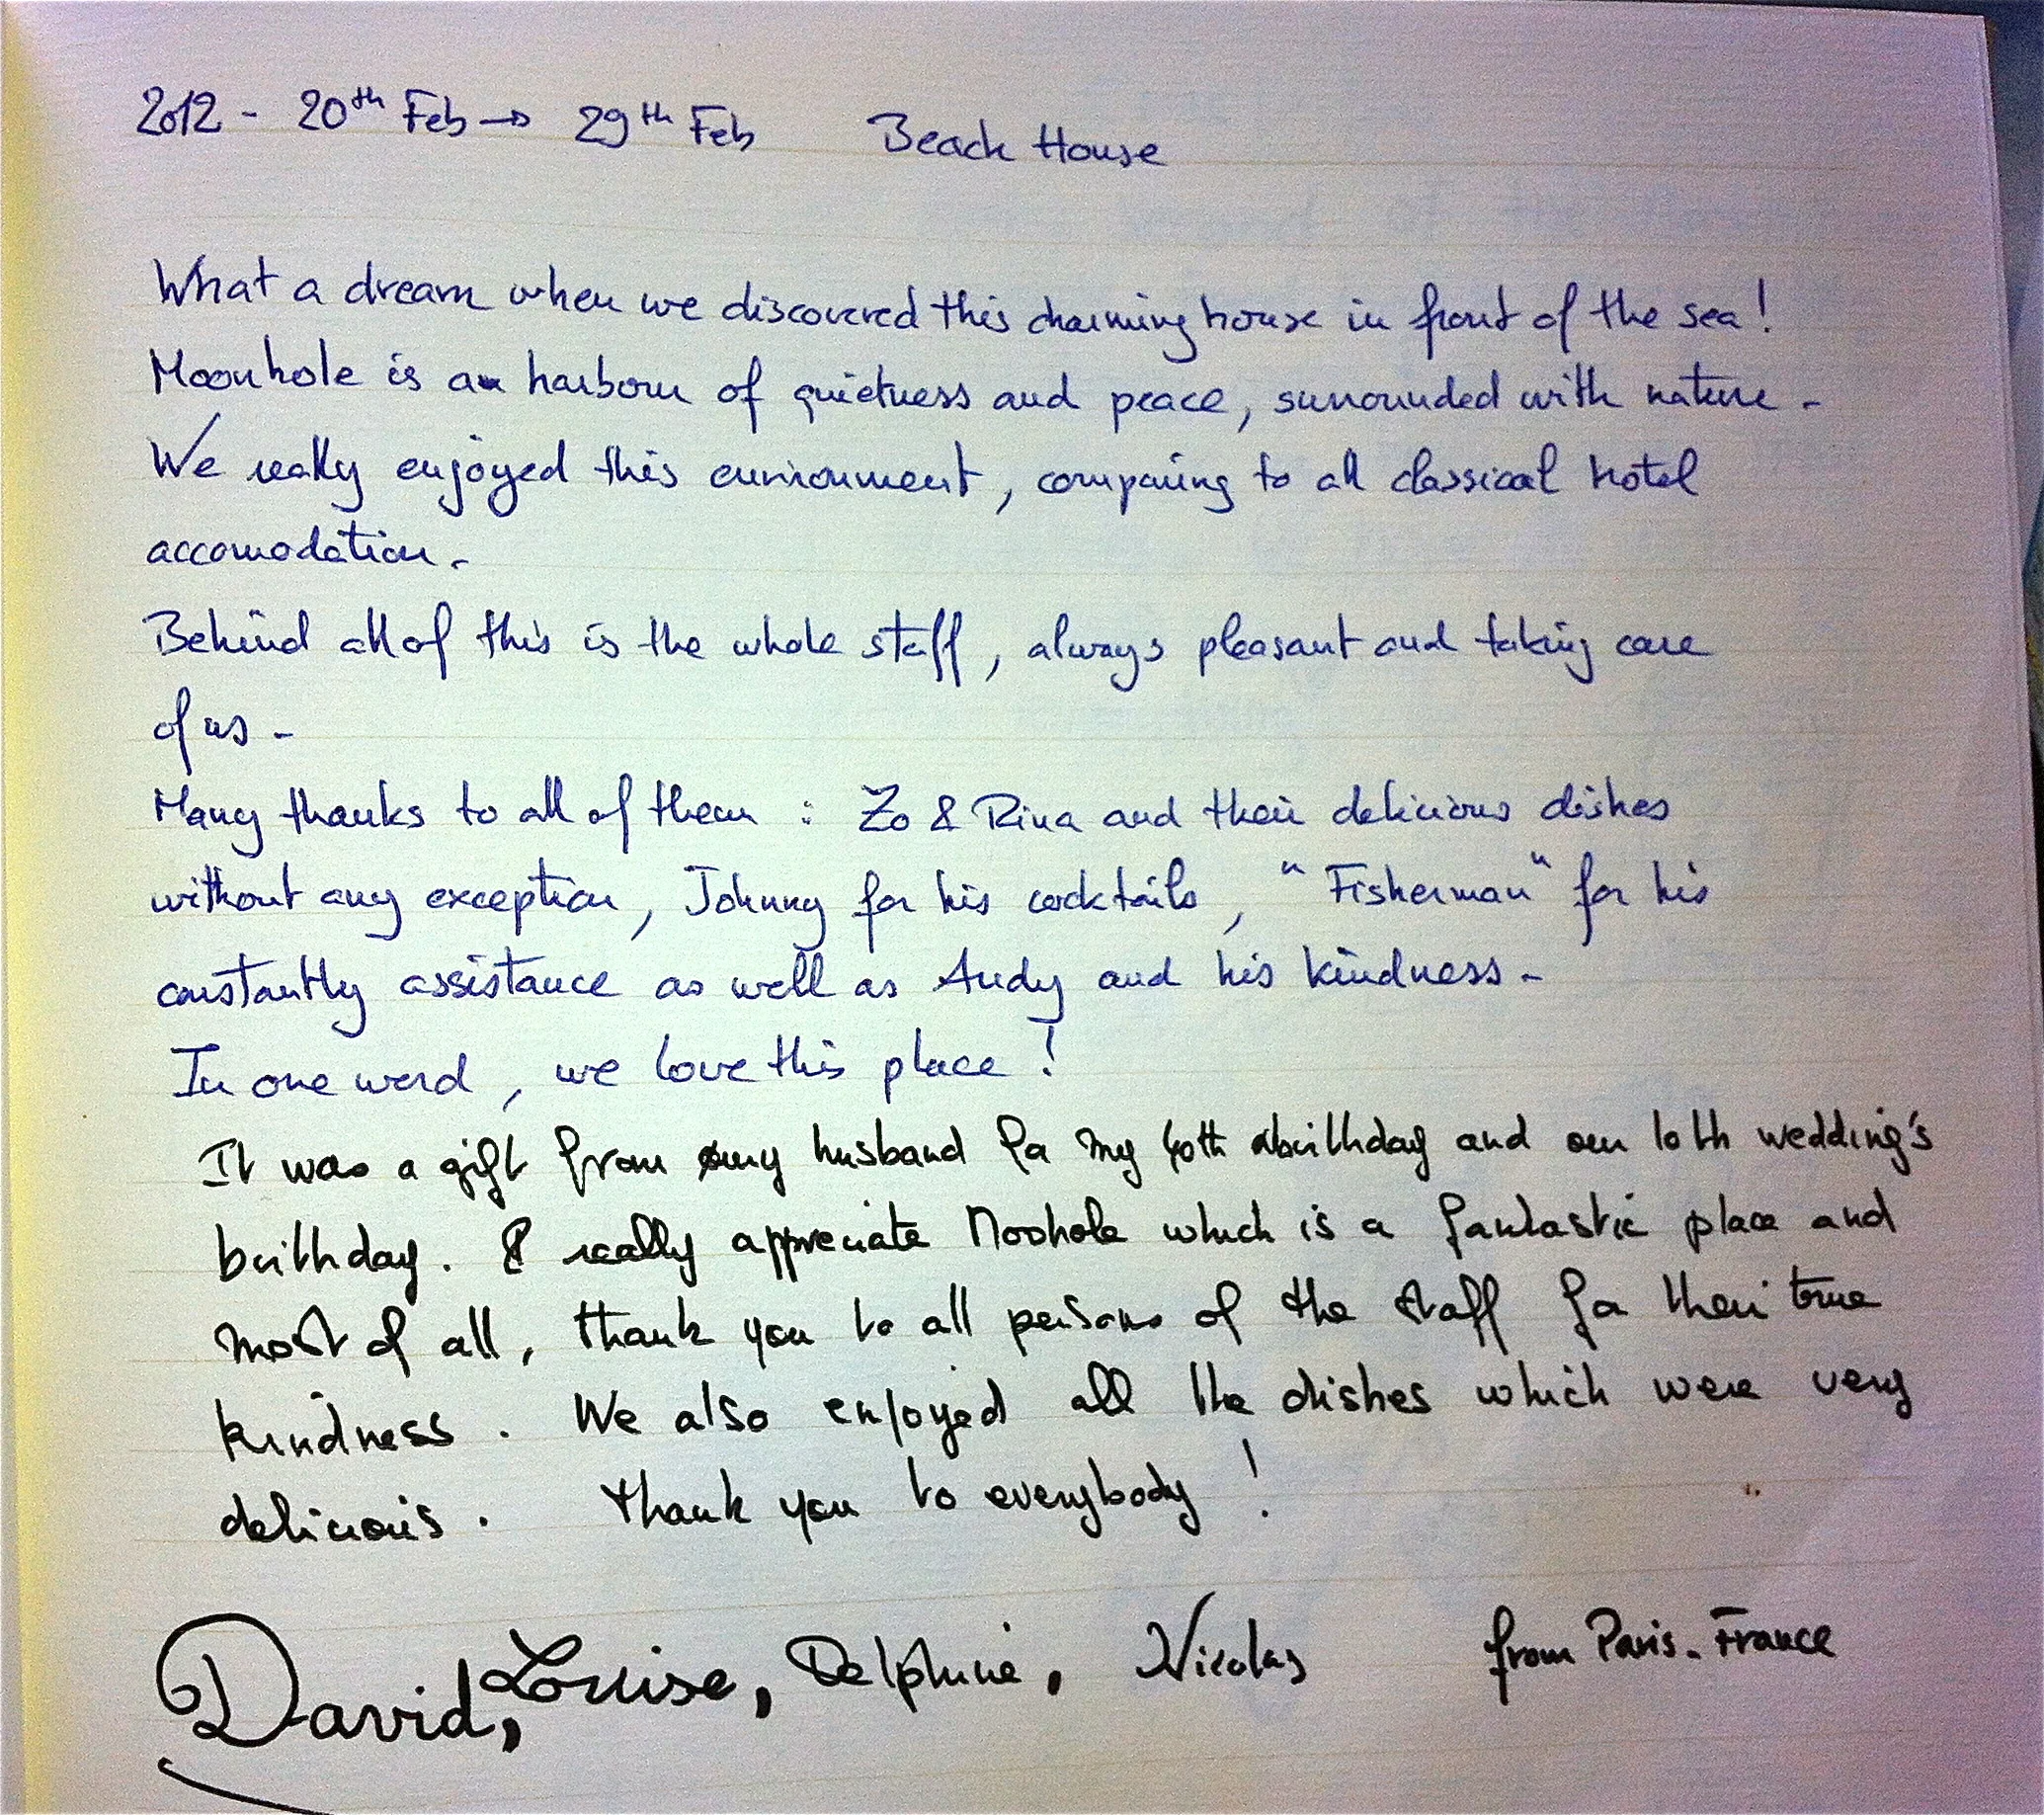 2012 - 20th Feb → 29th Feb Beach House
What a dream when we discovered this charming house in front of the sea !
Moonhole is a harbour of quietness and peace, surrounded with nature -
We really enjoyed this environment, comparing to all classical hotel
accomodation -
Behind all of this is the whole staff, always pleasant and taking care
of us -
Many thanks to all of them : Zo & Rina and their delicious dishes
without any exception, Johnny for his cocktails, "Fisherman" for his
constantly assistance as well as Andy and his kindness -
In one word, we love this place !
It was a gift from my husband for my 40th birthday and our 10th wedding's
birthday. I really appreciate Moohole which is a fantastic place and
most of all, thank you to all persons of the staff for their true
kindness. We also enjoyed all the dishes which were very
delicious. Thank you to everybody !
David, Louise, Delphine, Nicolas from Paris - France